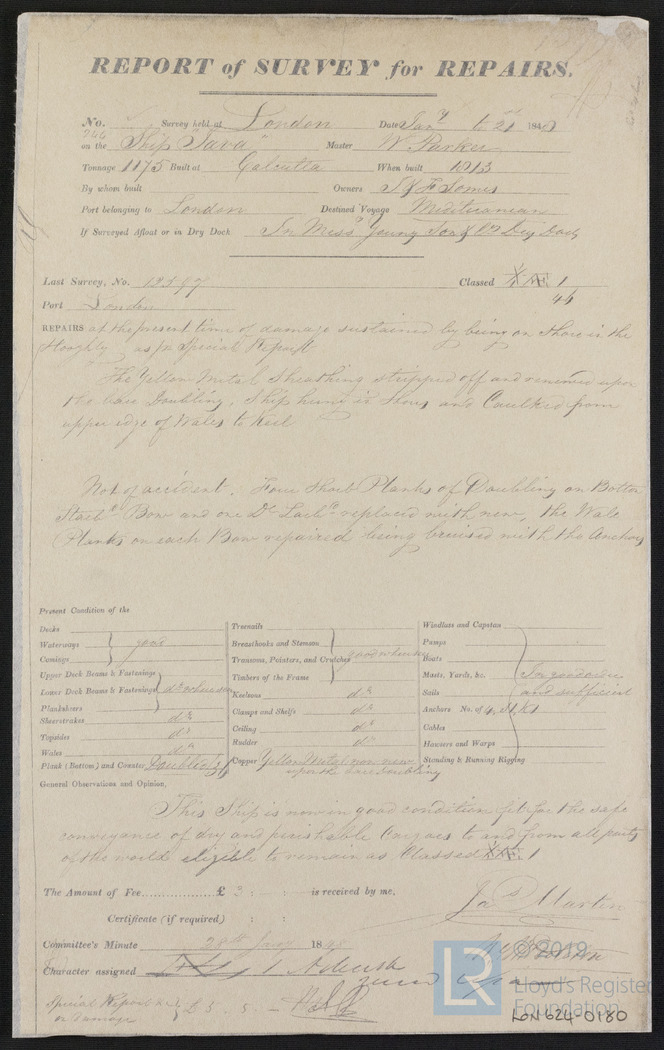 REPORT of SURVEY for REPAIRS.
No. 246 Survey held at London Date Jany 184
on the Ship "Java" Master W. Parker
Tonnage 1175 Built at Calcutta When built 1813
By whom built Owners J & F Somes
Port belonging to London Destined Voyage Mediteranean
If Surveyed Afloat or in Dry Dock In Messrs Young Son & Co Dry Dock
Last Survey, No. 12597 Classed Æ 1
Port London 46
REPAIRS at the present time of damage sustained by being on Shore in the
Hooghly as pr Special Report
The Yellow Metal Sheathing stripped off and renewed upon
the bare Doubling, Ship hung in Shores and Caulked from
upper edge of Wales to Keel
Not of accident. Four short Planks of Doubling on Bottom
Starbd Bow and one Do Larbd replaced with new, the Wale
Planks on each Bow repaired being bruised with the Anchors
Present Condition of the
Decks
Waterways good
Comings
Upper Deck Beams & Fastenings
Lower Deck Beams & Fastenings do where seen
Planksheers
Sheerstrakes do
Topsides do
Wales do
Plank (Bottom) and Counter Doubled
Treenails
Breasthooks and Stemson
Transoms, Pointers, and Crutches good where seen
Timbers of the Frame
Keelsons do
Clamps and Shelfs do
Ceiling do
Rudder do
Copper Yellow Metal now new
upon the bare doubling
Windlass and Capstan
Pumps
Boats
Masts, Yards, &c. In good order
Sails and sufficient
Anchors No. of 4,
Cables
Hawsers and Warps
Standing & Running Rigging
General Observations and Opinion,
This Ship is now in good condition fit for the safe
conveyance of dry and perishable Cargoes to and from all parts
of the world eligible to remain as Classed Æ 1
The Amount of Fee £ 3 : : is received by me,
Jas Martin
Certificate (if required) : :
Committee's Minute 28th Jany 1848
Character assigned 1
Special Report &c
on Damage £ 5 . 5 . -
LR
© 2019
Lloyd's Register
Foundation
LON624-0180